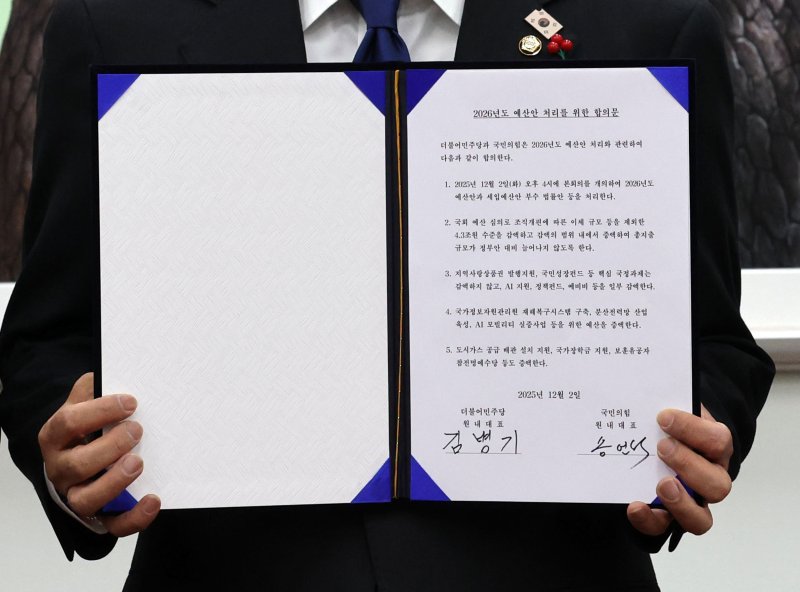 2026년도 예산안 처리를 위한 합의문
더불어민주당과 국민의힘은 2026년도 예산안 처리와 관련하여
다음과 같이 합의한다.
1. 2025년 12월 2일(화) 오후 4시에 본회의를 개의하여 2026년도
예산안과 세입예산안 부수 법률안 등을 처리한다.
2. 국회 예산 심의로 조직개편에 따른 이체 규모 등을 제외한
4.3조원 수준을 감액하고 감액의 범위 내에서 증액하여 총지출
규모가 정부안 대비 늘어나지 않도록 한다.
3. 지역사랑상품권 발행지원, 국민성장펀드 등 핵심 국정과제는
감액하지 않고, AI 지원, 정책펀드, 예비비 등을 일부 감액한다.
4. 국가정보자원관리원 재해복구시스템 구축, 분산전력망 산업
육성, AI 모빌리티 실증사업 등을 위한 예산을 증액한다.
5. 도시가스 공급 배관 설치 지원, 국가장학금 지원, 보훈유공자
참전명예수당 등도 증액한다.
2025년 12월 2일
더불어민주당 국민의힘
원내대표 원내대표
김병기 송언석